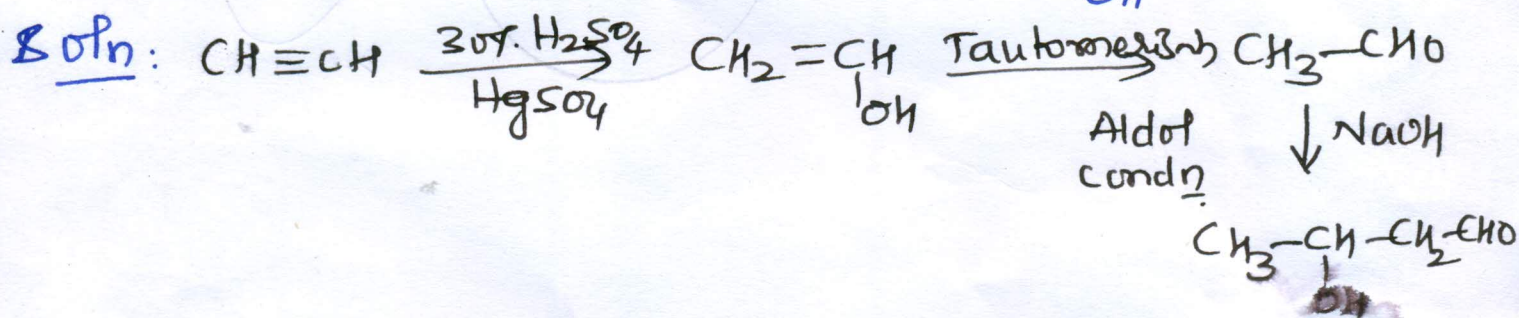 Soln: CH≡CH 30%. H2SO4 / HgSO4 → CH2=CH–OH Tautomerism → CH3–CHO
Aldol condn. ↓ NaOH
CH3–CH–CH2–CHO
OH